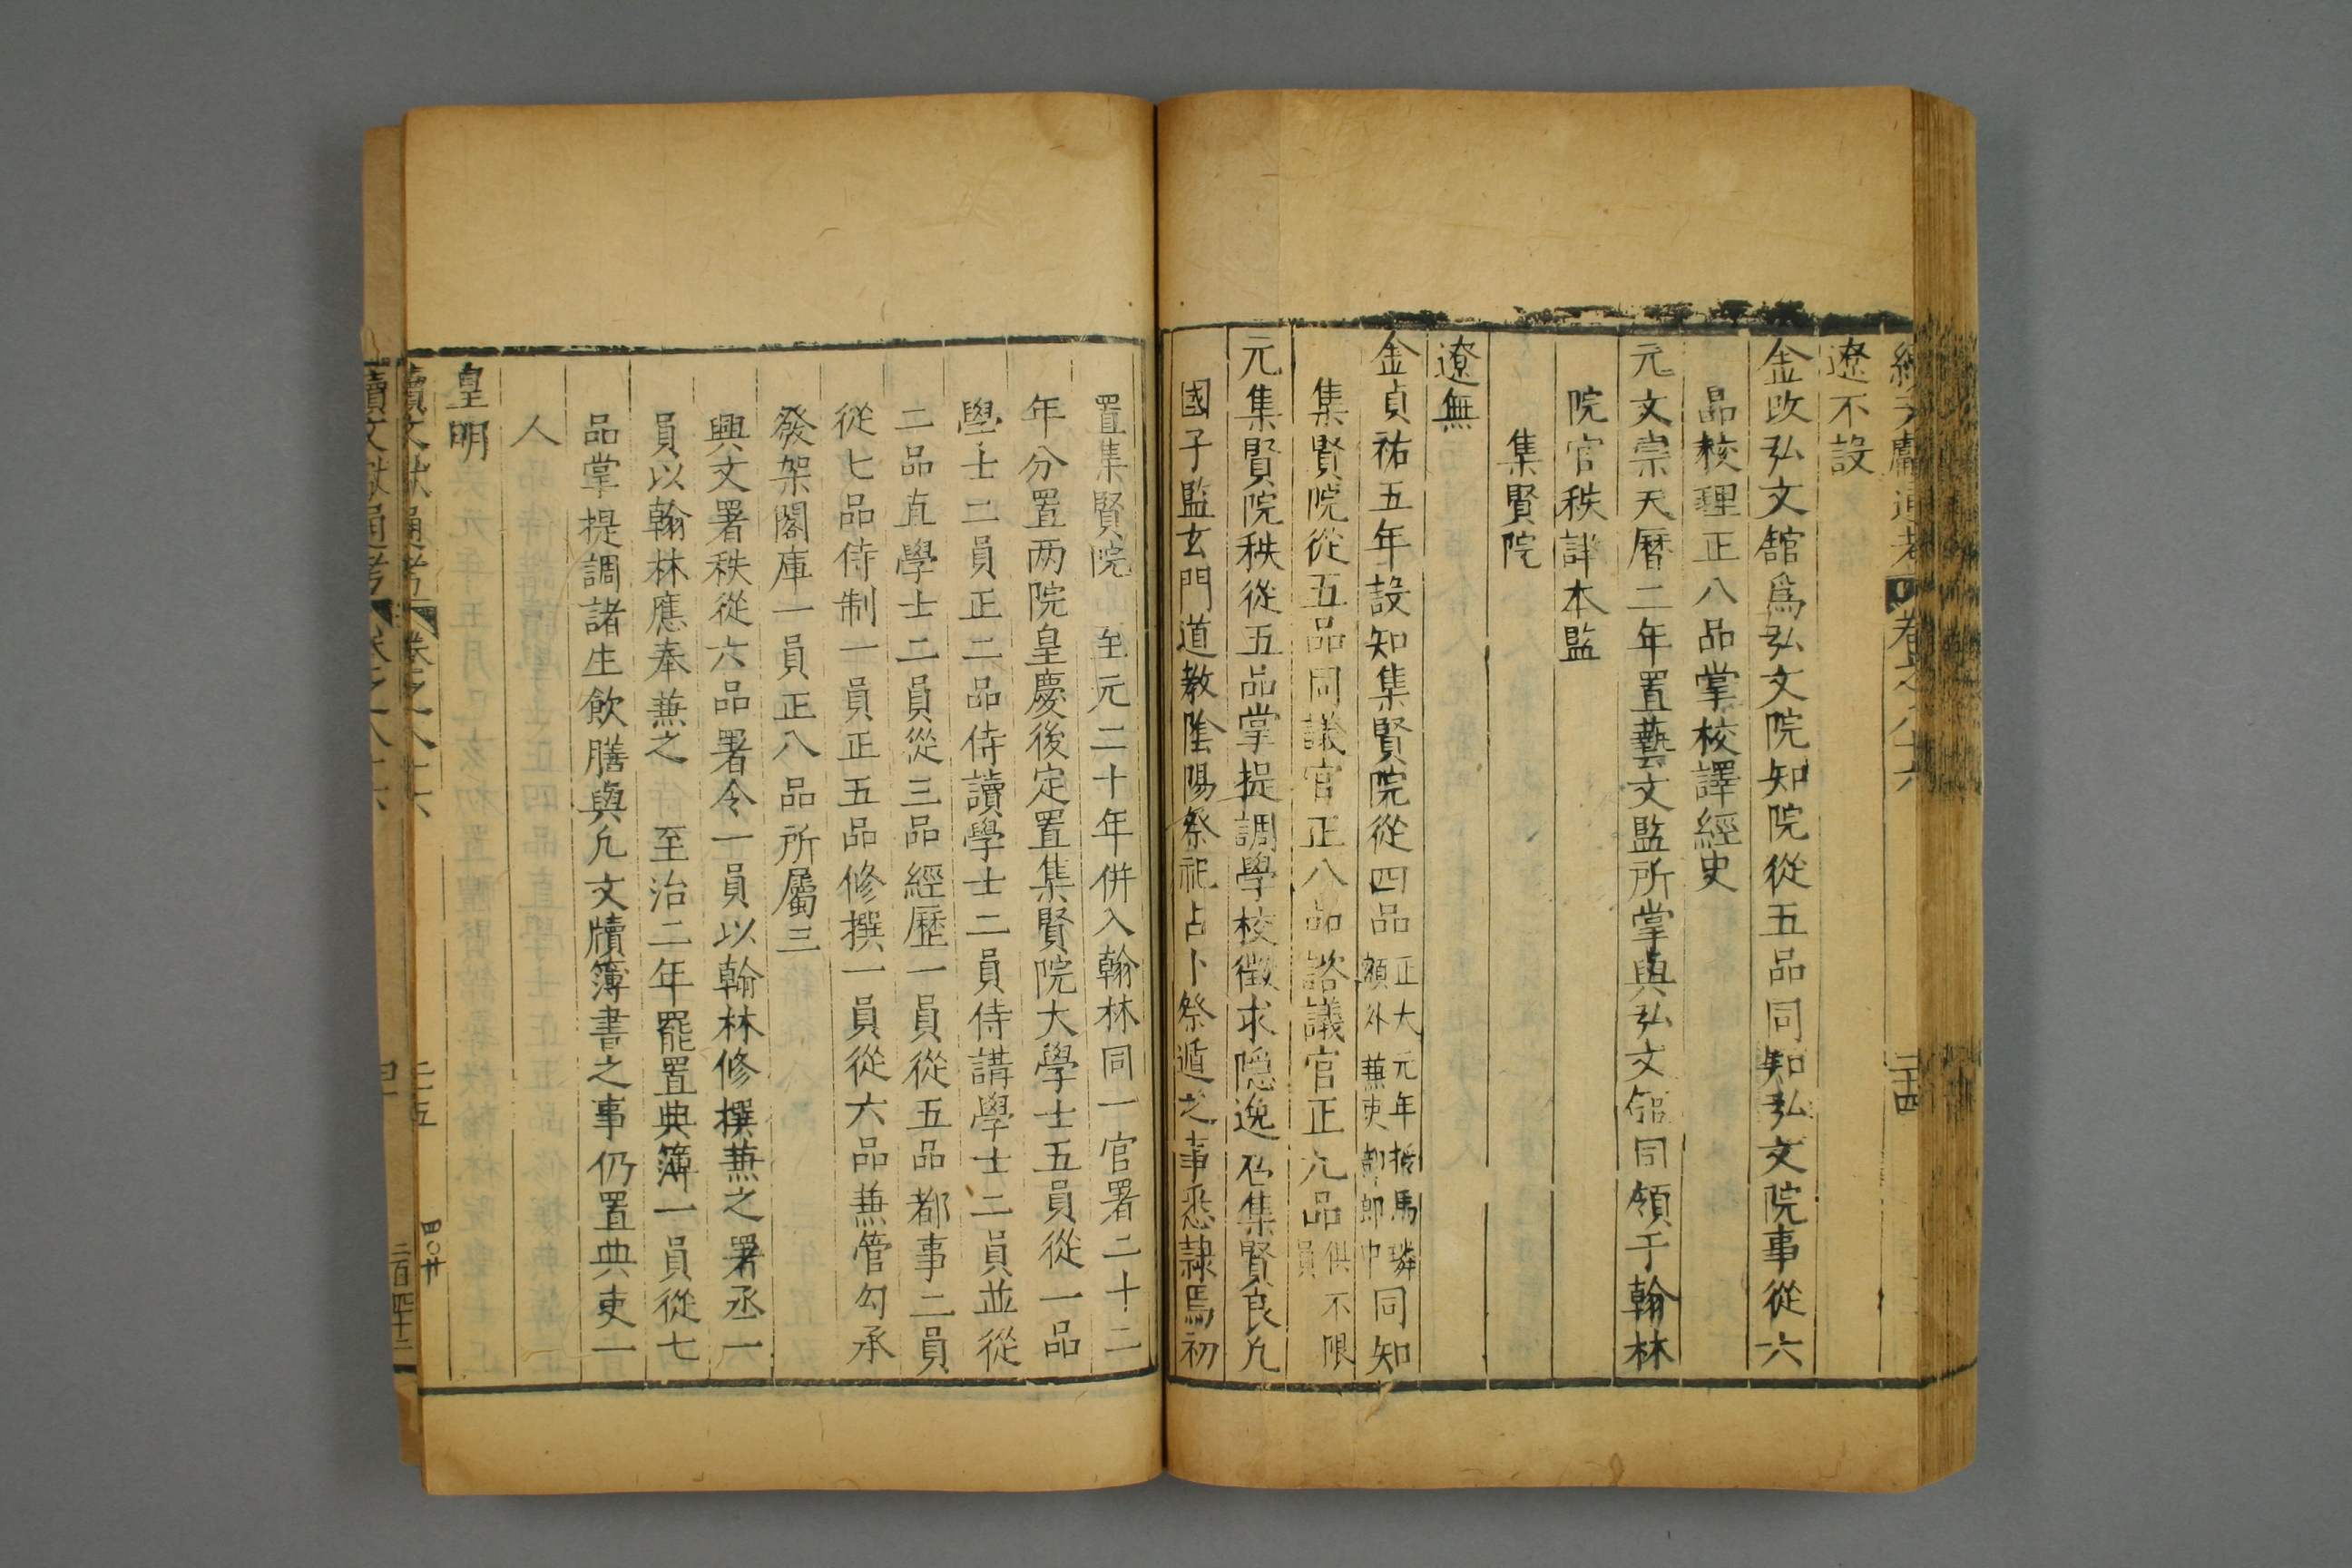 續文獻通考 卷之八十六 二十四
遼不設
金改弘文館爲弘文院知院從五品同知弘文院事從六
品校理正八品掌校譯經史
元文宗天曆二年置藝文監所掌與弘文館同領于翰林
院官秩詳本監
集賢院
遼無
金貞祐五年設知集賢院從四品正大元年授馬璘額外兼吏部郎中同知
集賢院從五品同議官正八品諮議官正九品俱不限員
元集賢院秩從五品掌提調學校徵求隱逸召集賢良凢
國子監玄門道教陰陽祭祀占卜祭遁之事悉隷焉初
置集賢院 至元二十年併入翰林同一官署二十二
年分置两院皇慶後定置集賢院大學士五員從一品
學士二員正二品侍讀學士二員侍講學士二員並從
二品直學士二員從三品經歷一員從五品都事二員
從七品待制一員正五品修撰一員從六品兼管勾承
發架閣庫一員正八品所屬三
興文署秩從六品署令一員以翰林修撰兼之署丞一
員以翰林應奉兼之 至治二年罷置典簿一員從七
品掌提調諸生飲膳與凢文牘簿書之事仍置典吏一
人
皇明
續文獻通考 卷之八十六 二十五 四〇廿
續文獻通考 卷之八十六 二百四十二